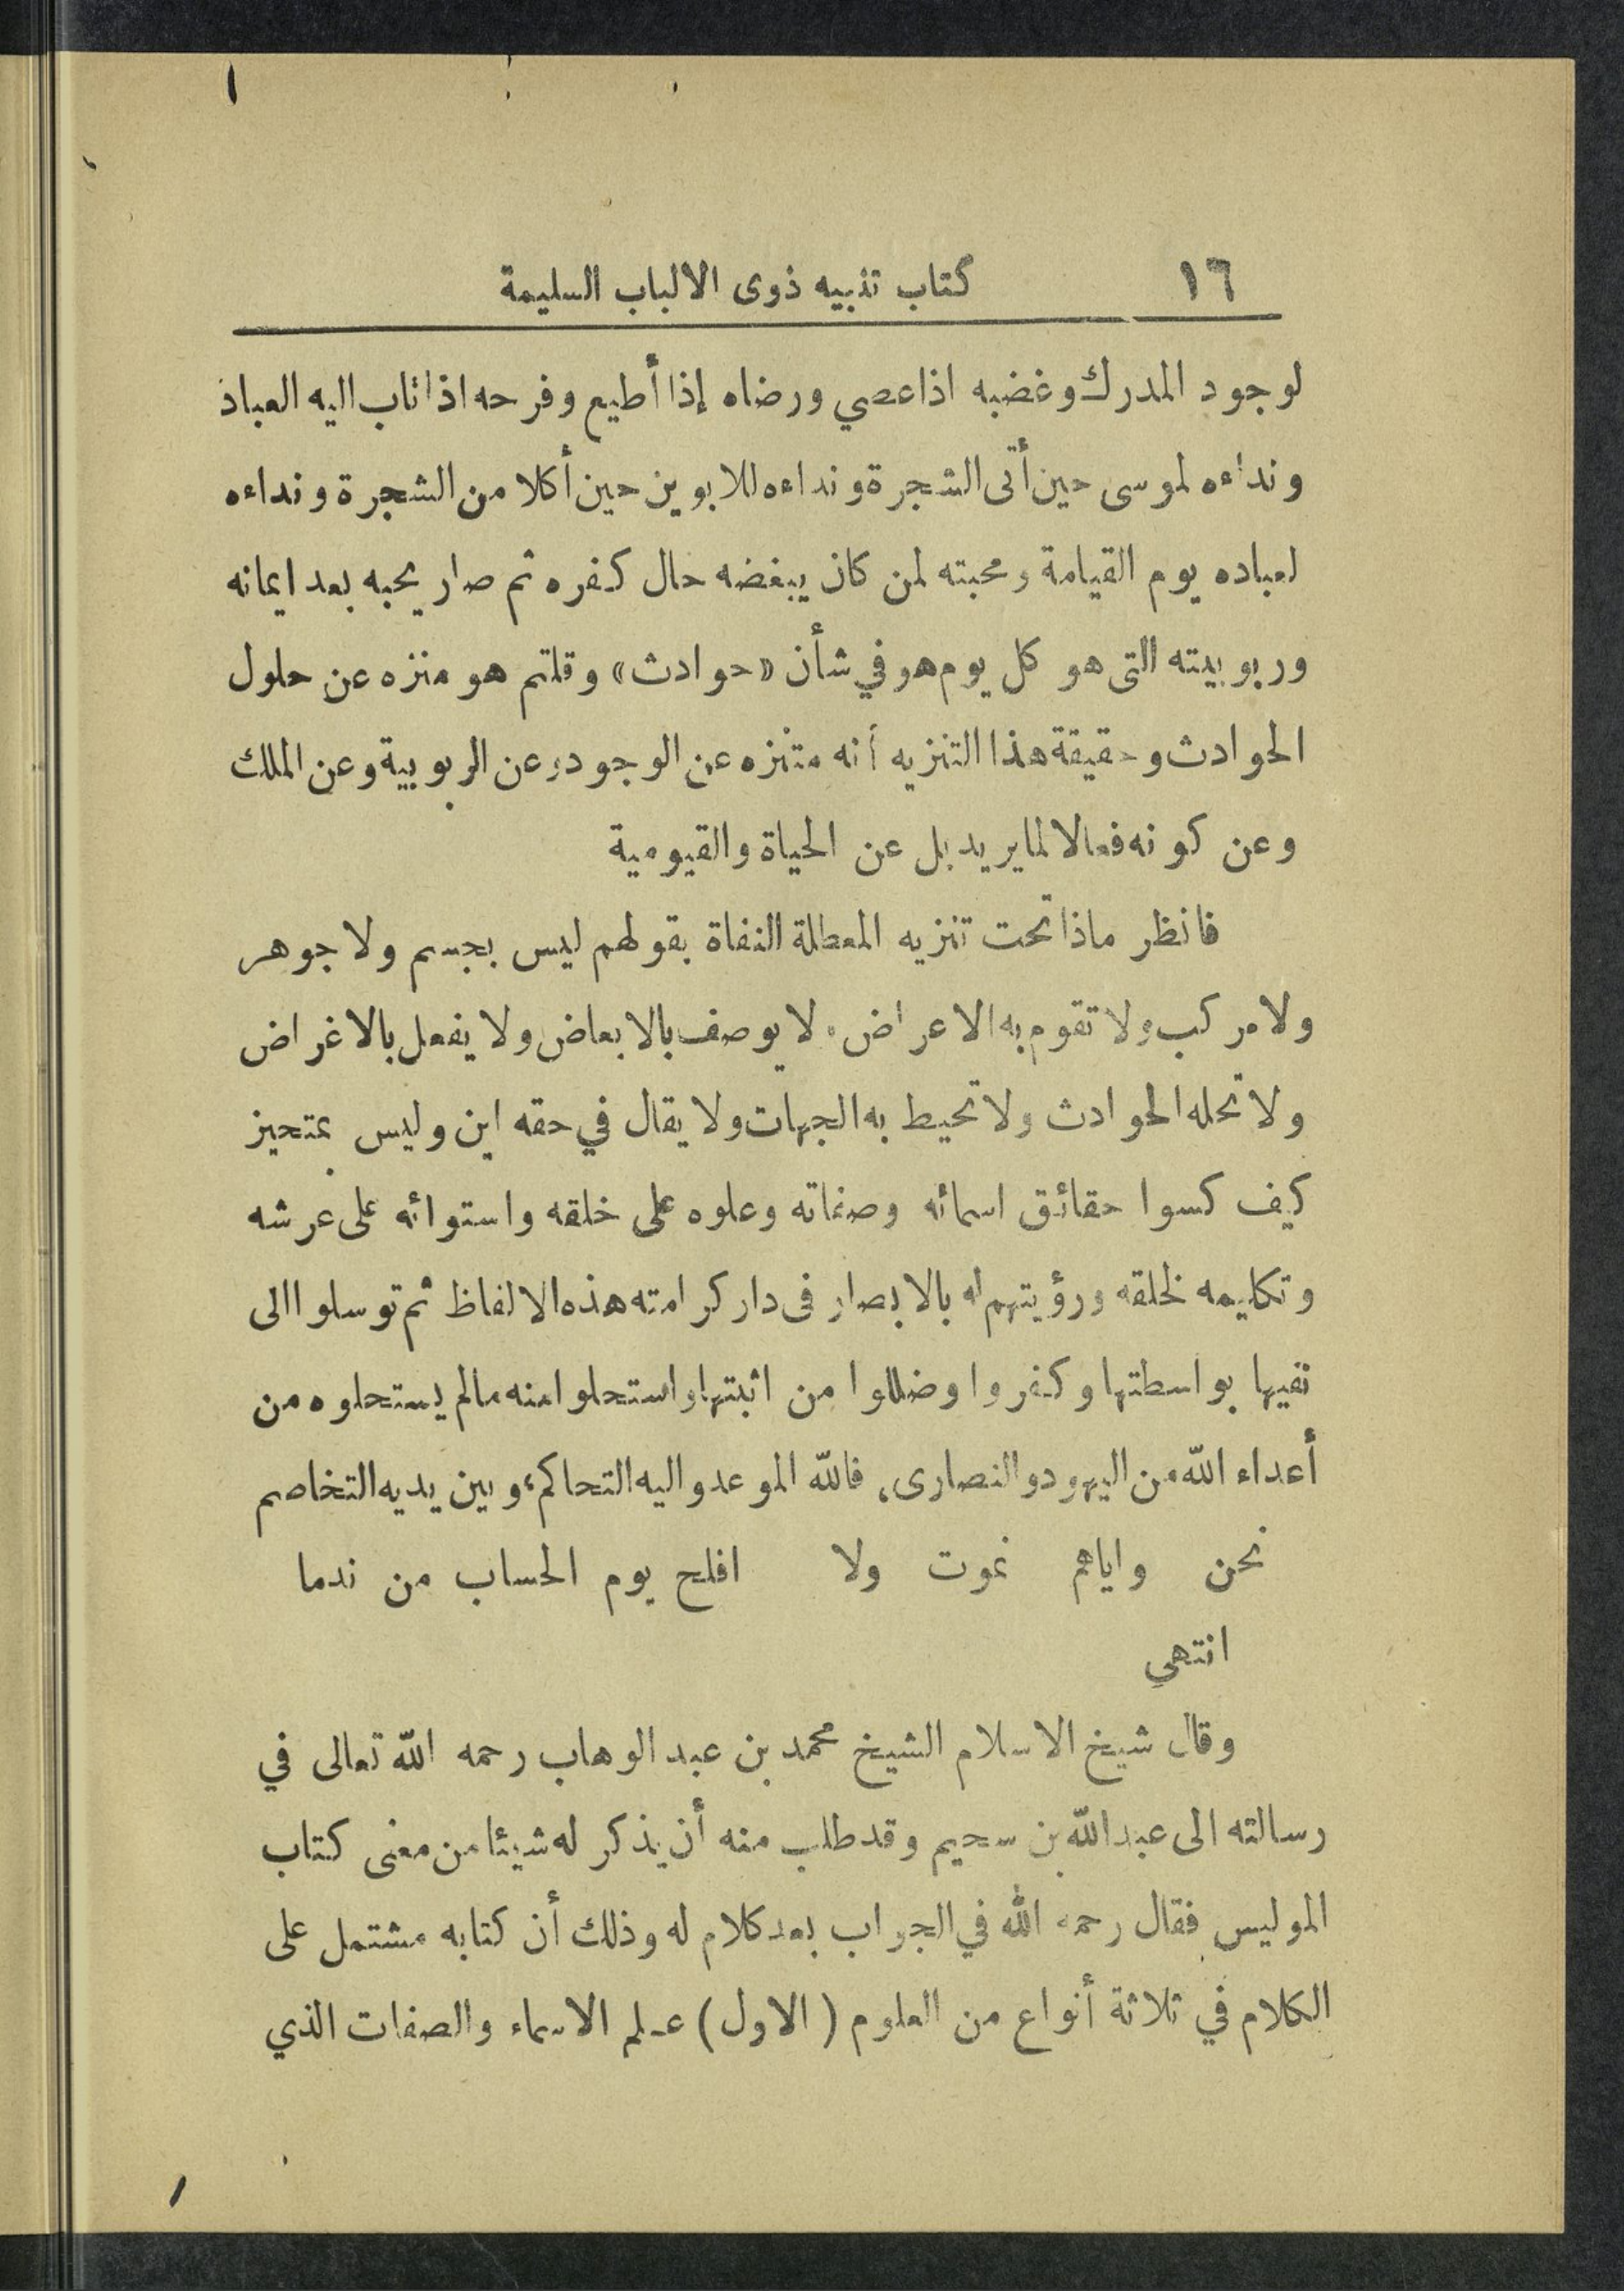 ١٦ كتاب تنبيه ذوى الالباب السليمة
لوجود المدرك وغضبه اذا عصي ورضاه إذا أطيع وفرحه اذا تاب اليه العباد
ونداءه لموسى حين أتى الشجرة ونداءه للابوين حين أكلا من الشجرة ونداءه
لعباده يوم القيامة ومحبته لمن كان يبغضه حال كفره ثم صار يحبه بعد ايمانه
وربوبيته التى هو كل يوم هو في شأن «حوادث» وقلتم هو منزه عن حلول
الحوادث وحقيقة هذا التنزيه أنه متنزه عن الوجود وعن الربوبية وعن الملك
وعن كونه فعالا لما يريد بل عن الحياة والقيومية
فانظر ماذا تحت تنزيه المعطلة النفاة بقولهم ليس بجسم ولا جوهر
ولا مركب ولا تقوم به الاعراض ولا يوصف بالابعاض ولا يفعل بالاغراض
ولا تحله الحوادث ولا تحيط به الجهات ولا يقال في حقه اين وليس بمتحيز
كيف كسوا حقائق اسمائه وصفاته وعلوه على خلقه واستوائه على عرشه
وتكليمه لخلقه ورؤيتهم له بالابصار فى دار كرامته هذه الالفاظ ثم توسلوا الى
نفيها بواسطتها وكفروا وضللوا من اثبتها واستحلوا منه مالم يستحلوه من
أعداء الله من اليهود والنصارى، فالله الموعد واليه التحاكم، وبين يديه التخاصم
نحن واياهم نموت ولا افلح يوم الحساب من ندما
انتهى
وقال شيخ الاسلام الشيخ محمد بن عبد الوهاب رحمه الله تعالى في
رسالته الى عبد الله بن سحيم وقد طلب منه أن يذكر له شيئا من معنى كتاب
المويس فقال رحمه الله في الجواب بعد كلام له وذلك أن كتابه مشتمل على
الكلام في ثلاثة أنواع من العلوم (الاول) علم الاسماء والصفات الذي